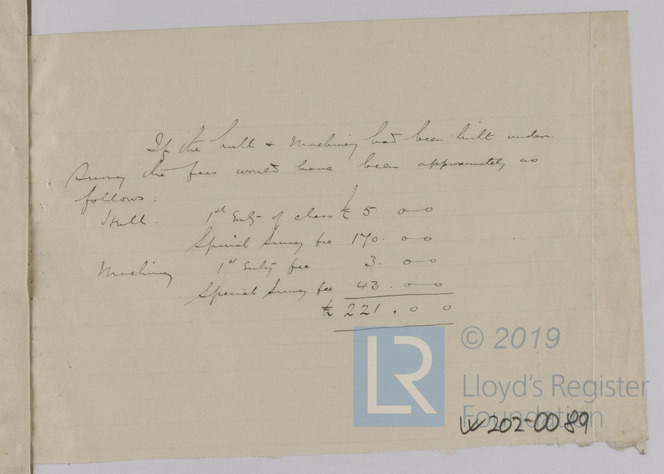 If the hull & Machinery had been built under
Survey the fees would have been approximately as
follows:
Hull. 1st Entry of class £ 5 0 0
Special Survey fee 170. 0 0
Machinery 1st Entry fee 3. 0 0
Special Survey fee 43. 0 0
£ 221. 0 0
© 2019
LR
Lloyd's Register
Foundation
W202-0089